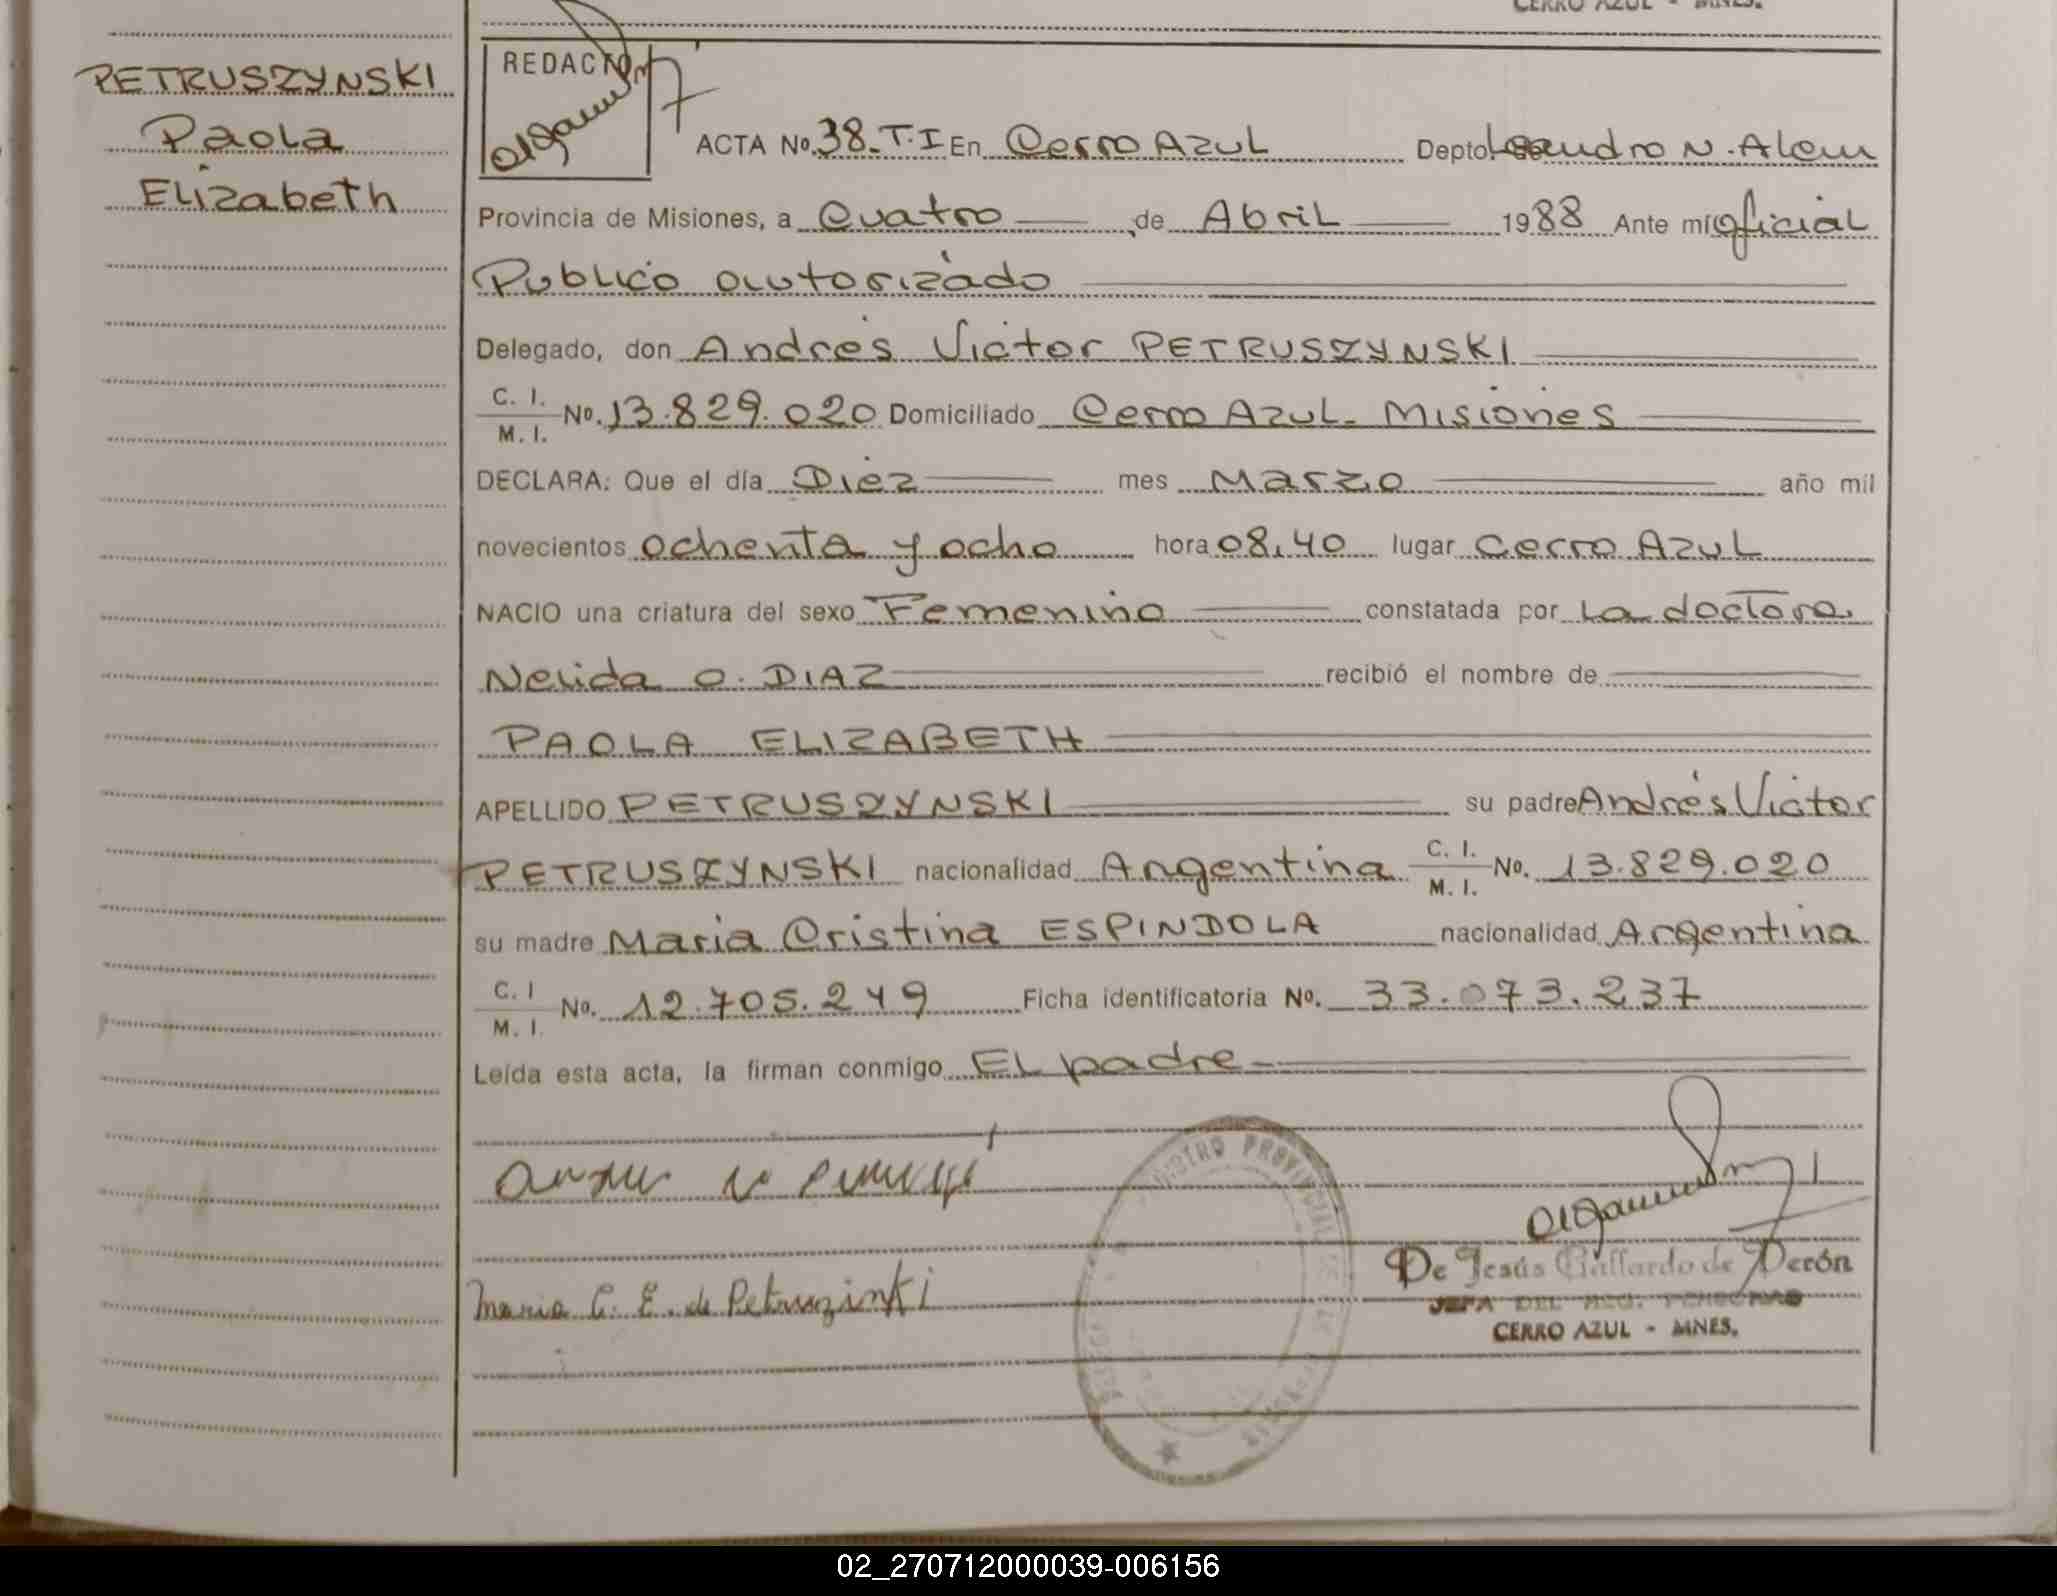 CERRO AZUL - MNES.
PETRUSZYNSKI
Paola
Elizabeth
REDACTO
ACTA No. 38-T.I En Cerro Azul Depto. Leandro N. Alem
Provincia de Misiones, a Cuatro de Abril 1988 Ante mí oficial
Publico autorizado
Delegado, don Andrés Victor PETRUSZYNSKI
C. I. / M. I. No. 13.829.020 Domiciliado Cerro Azul - Misiones
DECLARA: Que el día Diez mes Marzo año mil
novecientos ochenta y ocho hora 08,40 lugar Cerro Azul
NACIO una criatura del sexo Femenino constatada por La doctora
Nelida O. DIAZ recibió el nombre de
PAOLA ELIZABETH
APELLIDO PETRUSZYNSKI su padre Andrés Victor
PETRUSZYNSKI nacionalidad Argentina C. I. / M. I. No. 13.829.020
su madre Maria Cristina ESPINDOLA nacionalidad Argentina
C. I / M. I. No. 12.705.249 Ficha identificatoria No. 33.073.237
Leída esta acta, la firman conmigo El padre
Maria C. E. de Petruzinski
De Jesús Gallardo de Perón
JEFA DEL REG. PERSONAS
CERRO AZUL - MNES.
02_270712000039-006156